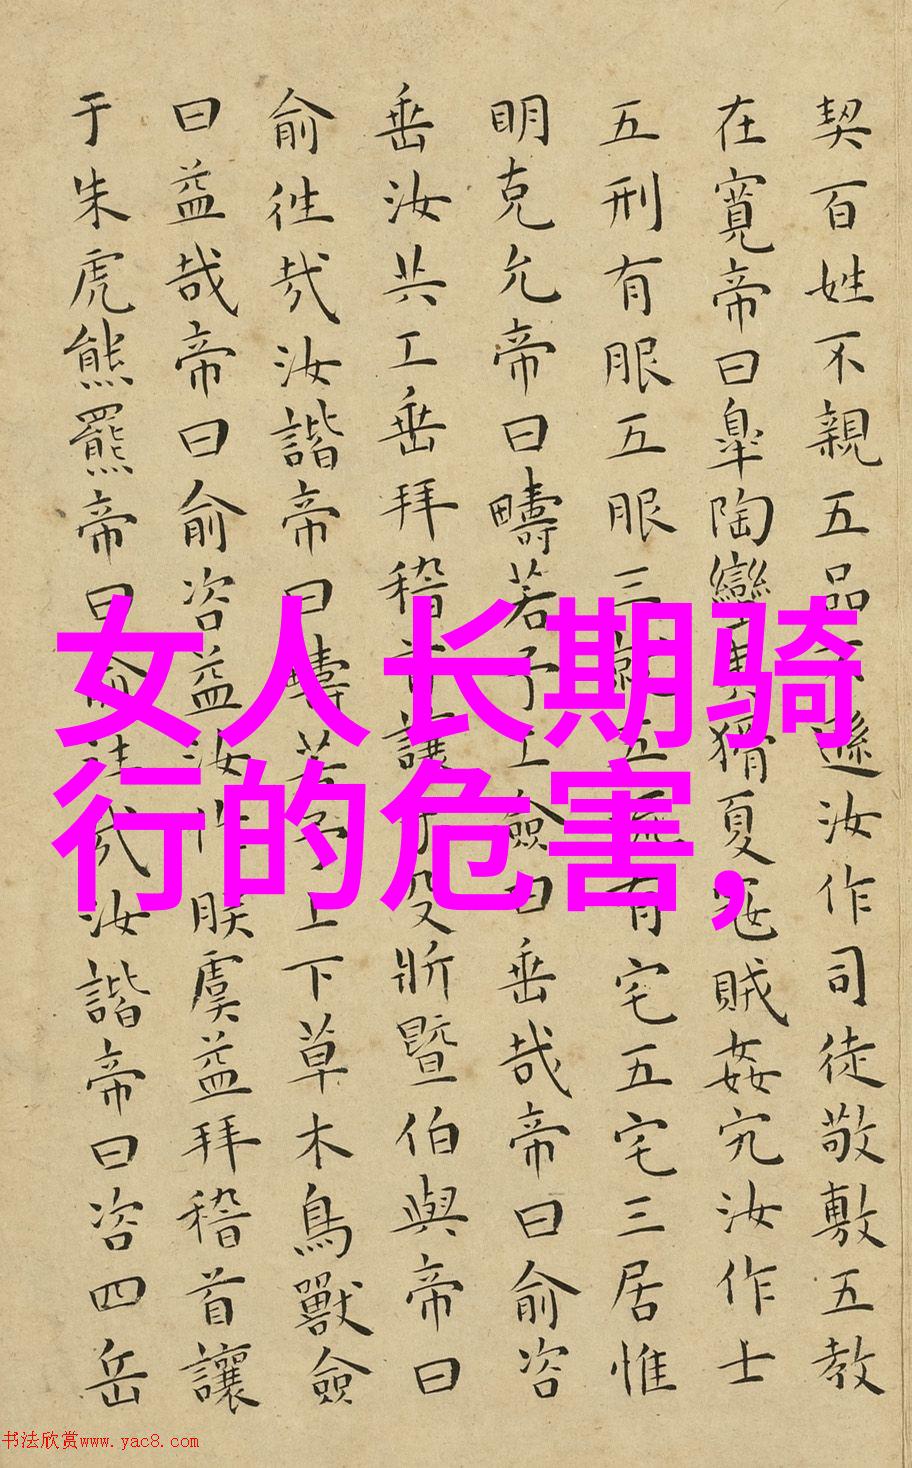 契百姓不親五品遜汝作司徒敬敷五教
在寬帝曰皋陶蠻夷猾夏寇賊姦宄汝作士
五刑有服五服三五有宅五宅三居惟
明克允帝曰疇若予工僉曰垂哉帝曰俞咨
垂汝共工垂拜稽首讓于殳斨暨伯與帝曰
俞往哉汝諧帝曰疇若予上下草木鳥獸僉
曰益哉帝曰俞咨益汝作朕虞益拜稽首讓
于朱虎熊羆帝曰俞往哉汝諧帝曰咨四岳
女人长期骑
行的危害,
书法欣赏www.yac8.com